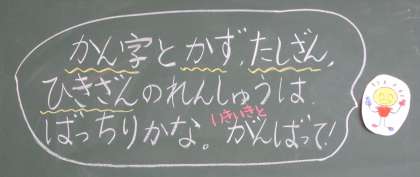 かん字とかず、たしざん、
ひきざんのれんしゅうは
ばっちりかな。いきいきと
がんばって！